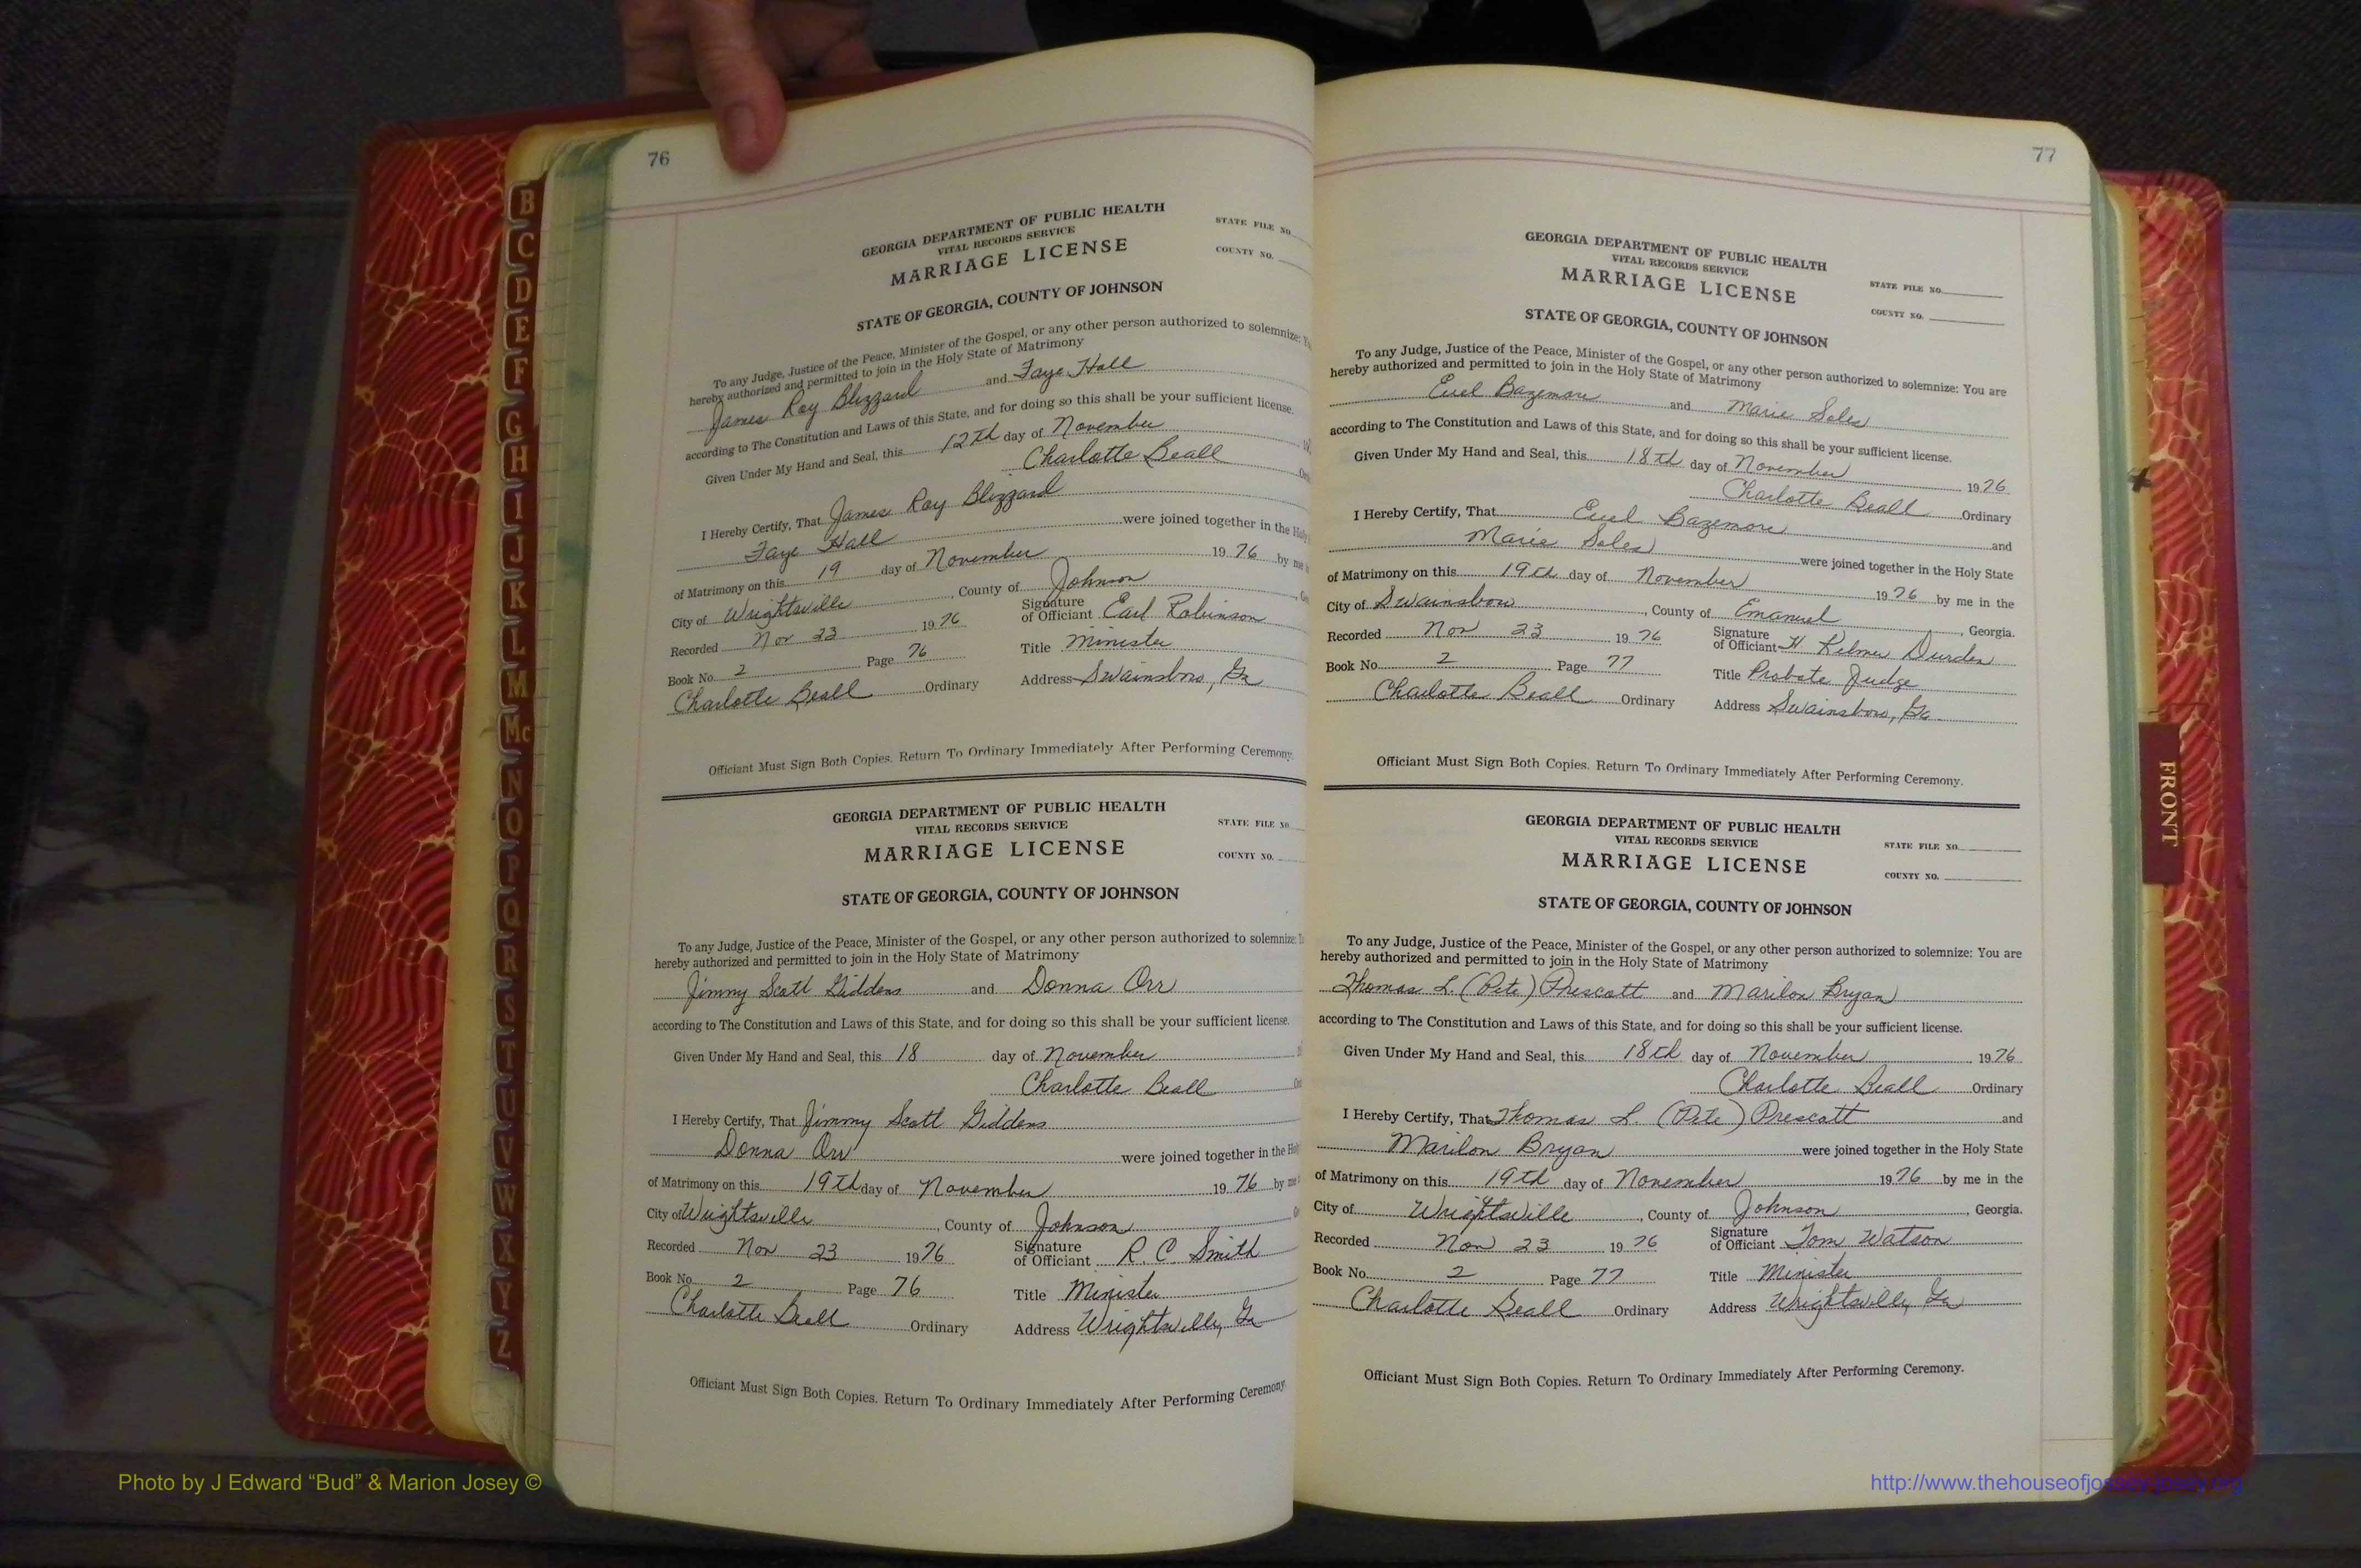 76
GEORGIA DEPARTMENT OF PUBLIC HEALTH
VITAL RECORDS SERVICE
MARRIAGE LICENSE
STATE FILE NO.
COUNTY NO.
STATE OF GEORGIA, COUNTY OF JOHNSON
To any Judge, Justice of the Peace, Minister of the Gospel, or any other person authorized to solemnize:
hereby authorized and permitted to join in the Holy State of Matrimony
James Roy Blizzard and Faye Hall
according to The Constitution and Laws of this State, and for doing so this shall be your sufficient license.
Given Under My Hand and Seal, this 12th day of November
Charlotte Beall
I Hereby Certify, That James Roy Blizzard
Faye Hall were joined together in the
of Matrimony on this 19 day of November 1976 by me
City of Wrightsville, County of Johnson
Recorded Nov 23 1976 Signature of Officiant Earl Robinson
Book No. 2 Page 76 Title Minister
Charlotte Beall Ordinary Address Swainsboro, Ga
Officiant Must Sign Both Copies. Return To Ordinary Immediately After Performing Ceremony.
GEORGIA DEPARTMENT OF PUBLIC HEALTH
VITAL RECORDS SERVICE
MARRIAGE LICENSE
STATE FILE NO.
COUNTY NO.
STATE OF GEORGIA, COUNTY OF JOHNSON
To any Judge, Justice of the Peace, Minister of the Gospel, or any other person authorized to solemnize:
hereby authorized and permitted to join in the Holy State of Matrimony
Jimmy Scott Giddens and Donna Orr
according to The Constitution and Laws of this State, and for doing so this shall be your sufficient license.
Given Under My Hand and Seal, this 18 day of November
Charlotte Beall
I Hereby Certify, That Jimmy Scott Giddens
Donna Orr were joined together in the
of Matrimony on this 19th day of November 1976 by me
City of Wrightsville, County of Johnson
Recorded Nov 23 1976 Signature of Officiant R. C. Smith
Book No. 2 Page 76 Title Minister
Charlotte Beall Ordinary Address Wrightsville, Ga
Officiant Must Sign Both Copies. Return To Ordinary Immediately After Performing Ceremony.
77
GEORGIA DEPARTMENT OF PUBLIC HEALTH
VITAL RECORDS SERVICE
MARRIAGE LICENSE
STATE FILE NO.
COUNTY NO.
STATE OF GEORGIA, COUNTY OF JOHNSON
To any Judge, Justice of the Peace, Minister of the Gospel, or any other person authorized to solemnize: You are
hereby authorized and permitted to join in the Holy State of Matrimony
Euel Bazemore and Marie
according to The Constitution and Laws of this State, and for doing so this shall be your sufficient license.
Given Under My Hand and Seal, this 18th day of November 1976
Charlotte Beall Ordinary
I Hereby Certify, That Euel Bazemore and
Marie were joined together in the Holy State
of Matrimony on this 19th day of November 1976 by me in the
City of Swainsboro, County of Emanuel, Georgia.
Recorded Nov 23 1976 Signature of Officiant H Durden
Book No. 2 Page 77 Title Probate Judge
Charlotte Beall Ordinary Address Swainsboro, Ga.
Officiant Must Sign Both Copies. Return To Ordinary Immediately After Performing Ceremony.
GEORGIA DEPARTMENT OF PUBLIC HEALTH
VITAL RECORDS SERVICE
MARRIAGE LICENSE
STATE FILE NO.
COUNTY NO.
STATE OF GEORGIA, COUNTY OF JOHNSON
To any Judge, Justice of the Peace, Minister of the Gospel, or any other person authorized to solemnize: You are
hereby authorized and permitted to join in the Holy State of Matrimony
Thomas L. (Pete) Prescott and Marilon Bryan
according to The Constitution and Laws of this State, and for doing so this shall be your sufficient license.
Given Under My Hand and Seal, this 18th day of November 1976
Charlotte Beall Ordinary
I Hereby Certify, That Thomas L. (Pete) Prescott and
Marilon Bryan were joined together in the Holy State
of Matrimony on this 19th day of November 1976 by me in the
City of Wrightsville, County of Johnson, Georgia.
Recorded Nov 23 1976 Signature of Officiant Tom Watson
Book No. 2 Page 77 Title Minister
Charlotte Beall Ordinary Address Wrightsville, Ga
Officiant Must Sign Both Copies. Return To Ordinary Immediately After Performing Ceremony.
B
C
D
E
F
G
H
I
J
K
L
M
Mc
N
O
P
Q
R
S
T
U
V
W
X
Y
Z
FRONT
Photo by J Edward “Bud” & Marion Josey ©
http://www.thehouseofjossey-josey.org